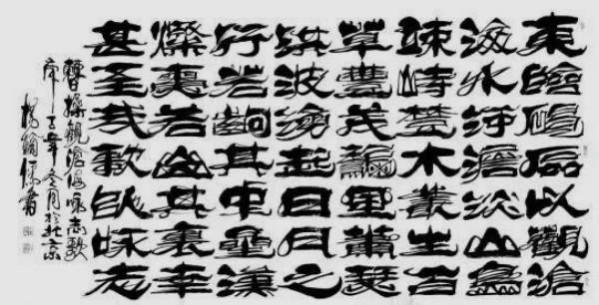 東臨碣石以觀滄
海水河澹淡山島
竦峙樹木叢生百
草豐茂秋風蕭瑟
洪波湧起日月之
行若出其中星漢
燦爛若出其裏幸
甚至哉歌以詠志
曹操觀滄海詠志歌
庚子年冬月於北京